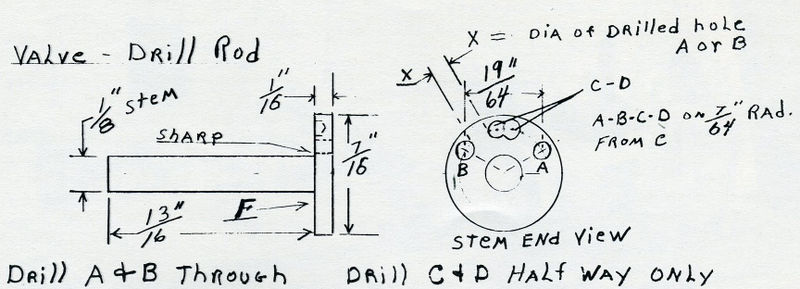 VALVE - DRILL ROD
X = DIA OF DRILLED HOLE
A OR B
1/8" STEM
1/16"
SHARP
7/16"
13"/16
F
X
19"/64
C-D
A-B-C-D ON 7/64" RAD.
FROM C
B
A
STEM END VIEW
DRILL A & B THROUGH
DRILL C & D HALF WAY ONLY